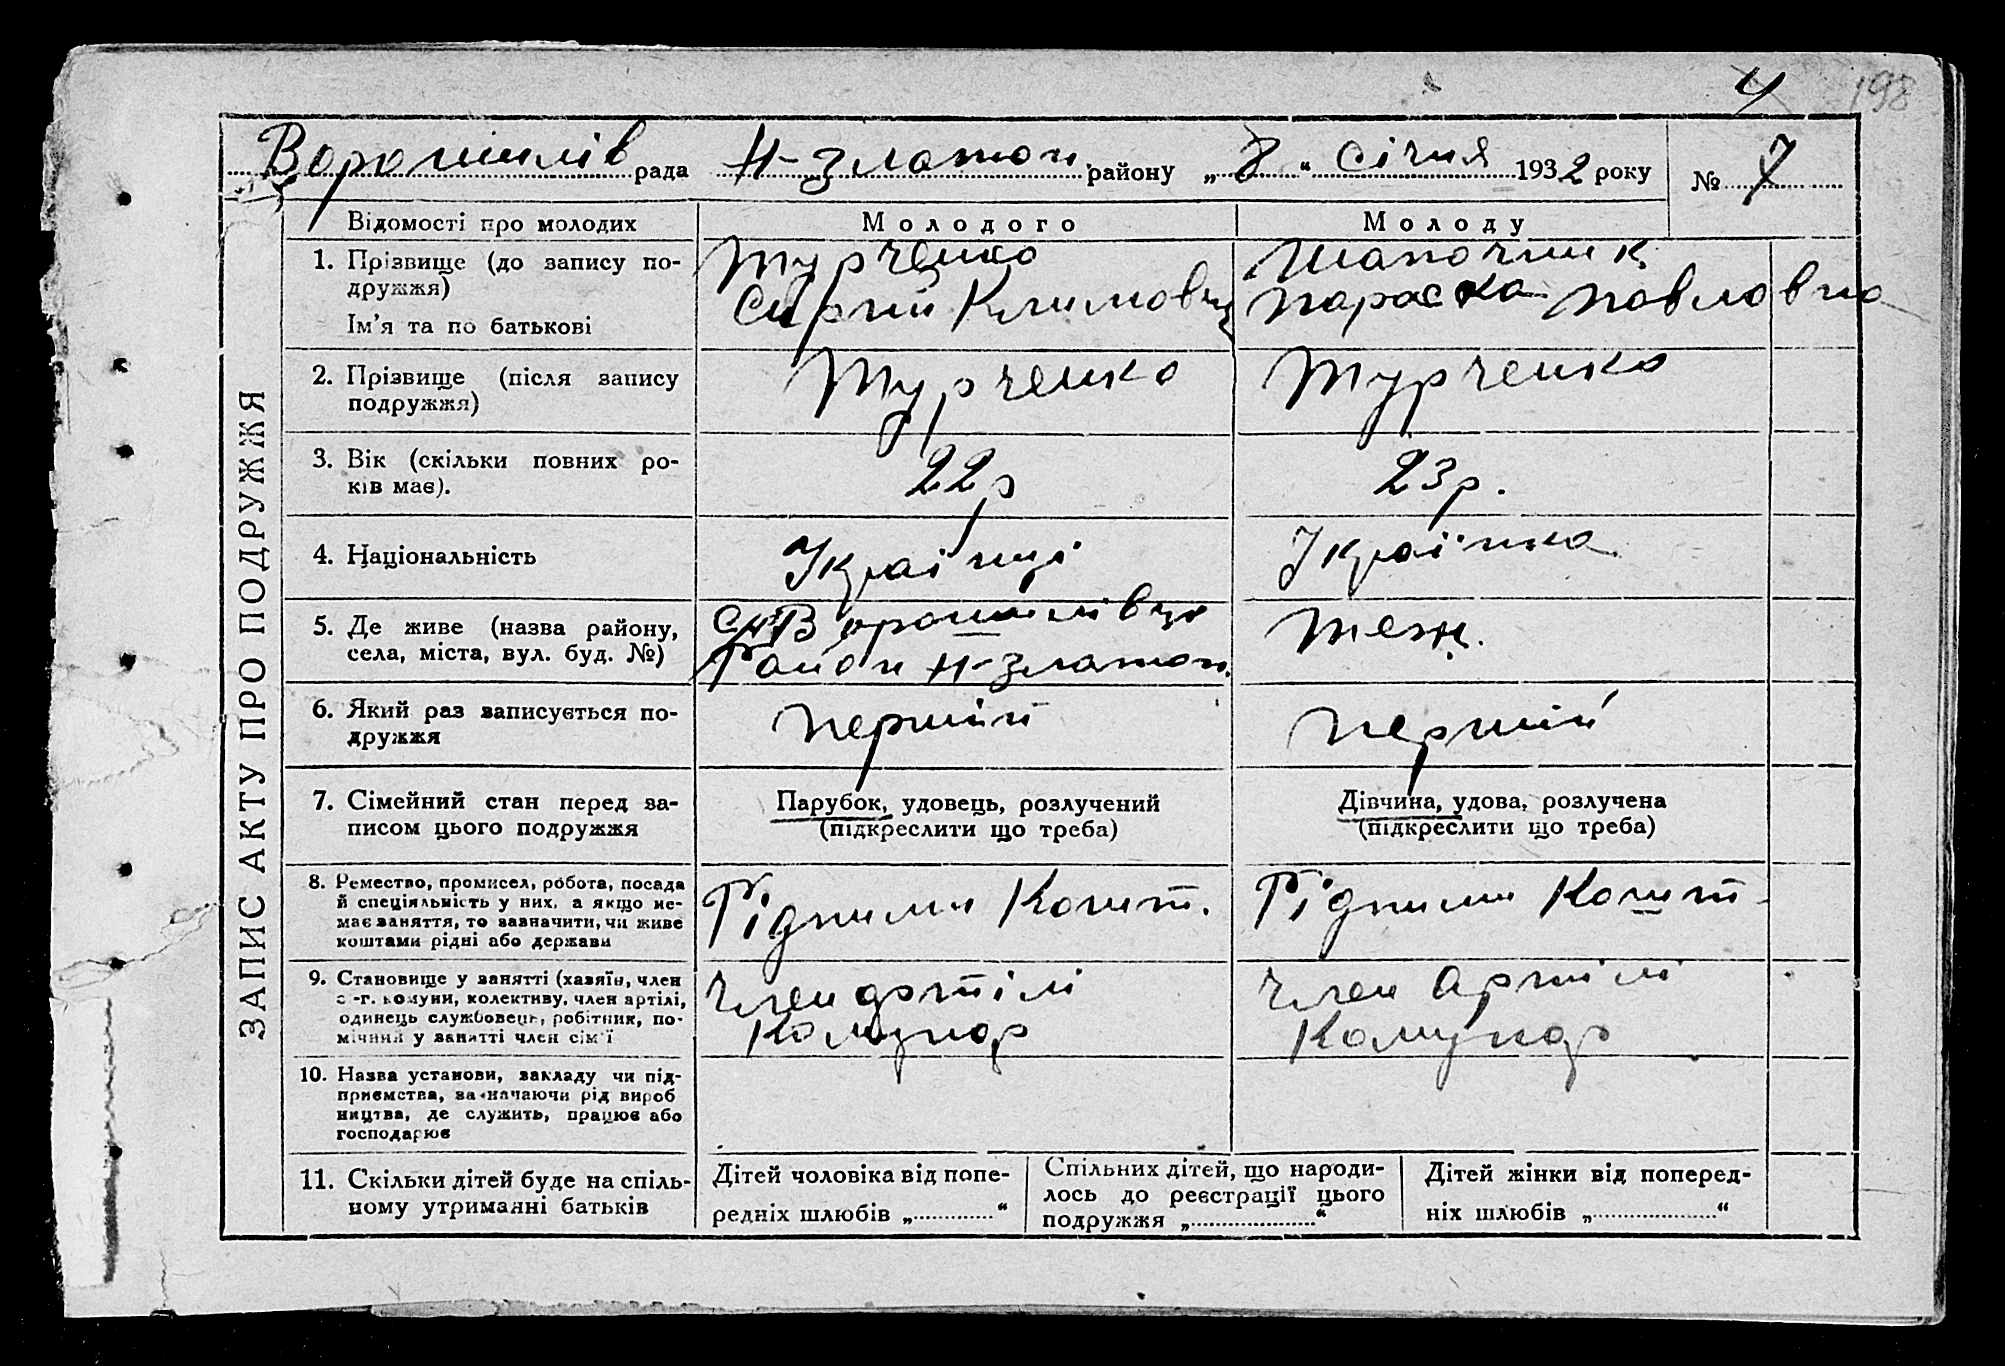 4
198
Ворошилів рада Н-златоп. району „8“ січня 1932 року № 7
ЗАПИС АКТУ ПРО ПОДРУЖЖЯ
Відомості про молодих
Молодого
Молоду
1. Прізвище (до запису по-
дружжя)
Ім'я та по батькові
Турченко
Сергій Климович
Шапочник
Параска Павловна
2. Прізвище (після запису
подружжя)
Турченко
Турченко
3. Вік (скільки повних ро-
ків має).
22р
23р.
4. Національність
Україці
Українка
5. Де живе (назва району,
села, міста, вул. буд. №)
Ворошилівци
Район Н-златоп.
теж.
6. Який раз записується по-
дружжя
перший
перший
7. Сімейний стан перед за-
писом цього подружжя
Парубок, удовець, розлучений
(підкреслити що треба)
Дівчина, удова, розлучена
(підкреслити що треба)
8. Ремество, промисел, робота, посада
й спеціяльність у них, а якщо не-
має заняття, то зазначити, чи живе
коштами рідні або держави
Рідними Кошт.
Рідними Кошт.
9. Становище у занятті (хазяїн, член
с.-г. комуни, колективу, член артілі,
одинець службовець, робітник, по-
мічний у занятті член сім'ї
член артілі
Комунар
член Артілі
Комунар
10. Назва установи, закладу чи під-
приємства, зазначаючи рід вироб
ництва, де служить, працює або
господарює
11. Скільки дітей буде на спіль-
ному утриманні батьків
Дітей чоловіка від попе-
редніх шлюбів „............“
Спільних дітей, що народи-
лось до реєстрації цього
подружжя „............“
Дітей жінки від поперед-
ніх шлюбів „............“